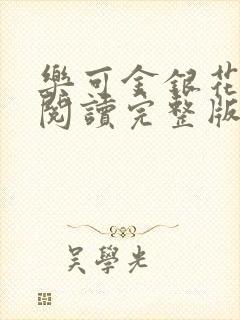 樂可金銀花
閱讀完整版
吳學光